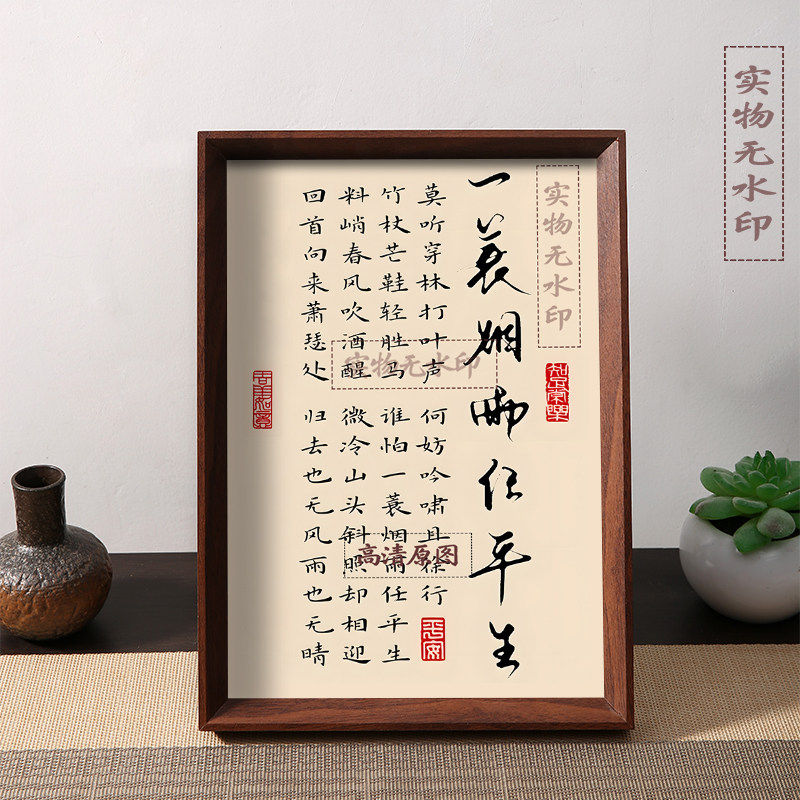 实物无水印
实物无水印
一蓑烟雨任平生
知足常乐
莫听穿林打叶声 何妨吟啸且徐行
竹杖芒鞋轻胜马 谁怕一蓑烟雨任平生
料峭春风吹酒醒 微冷山头斜照却相迎
回首向来萧瑟处 归去也无风雨也无晴
实物无水印
高清原图
平安